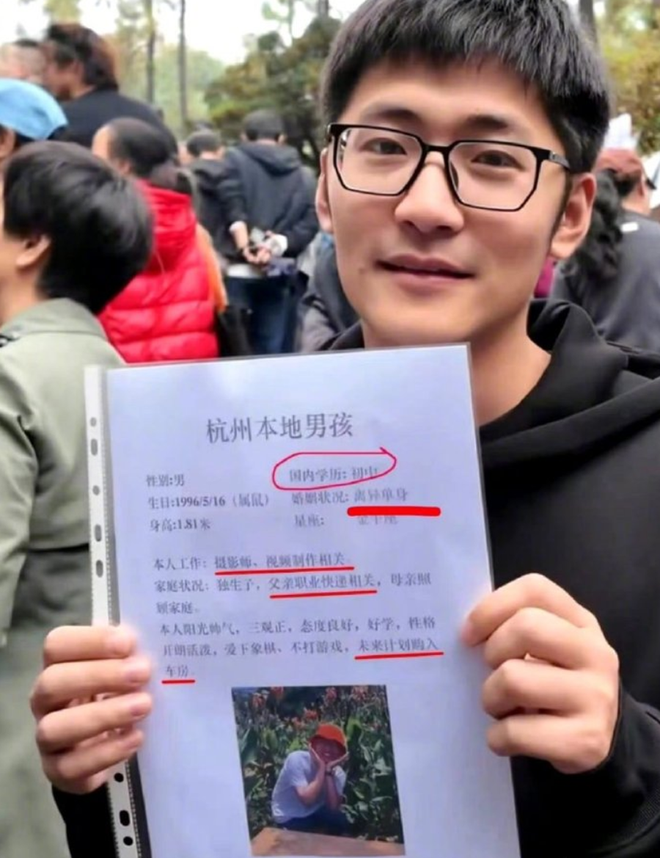 杭州本地男孩
性别:男 国内学历: 初中
生日:1996/5/16（属鼠） 婚姻状况: 离异单身
身高:1.81米 星座: 金牛座
本人工作: 摄影师、视频制作相关
家庭状况: 独生子, 父亲职业快递相关, 母亲照
顾家庭。
本人阳光帅气, 三观正, 态度良好, 好学, 性格
开朗活泼, 爱下象棋、不打游戏, 未来计划购入
车房。